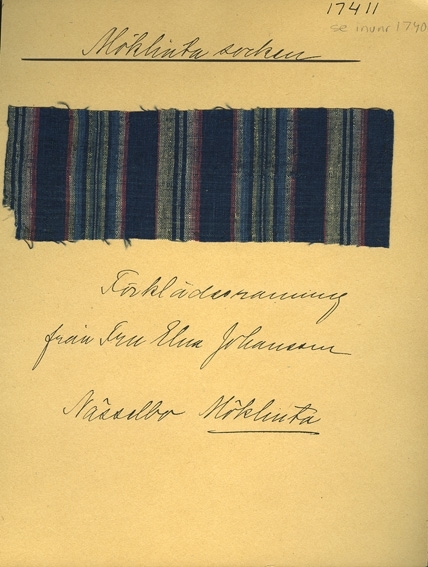 17411
se invnr 1740
Möklinta socken
Förklädesvanning
från Fru Elna Johansson
Nässelbo Möklinta